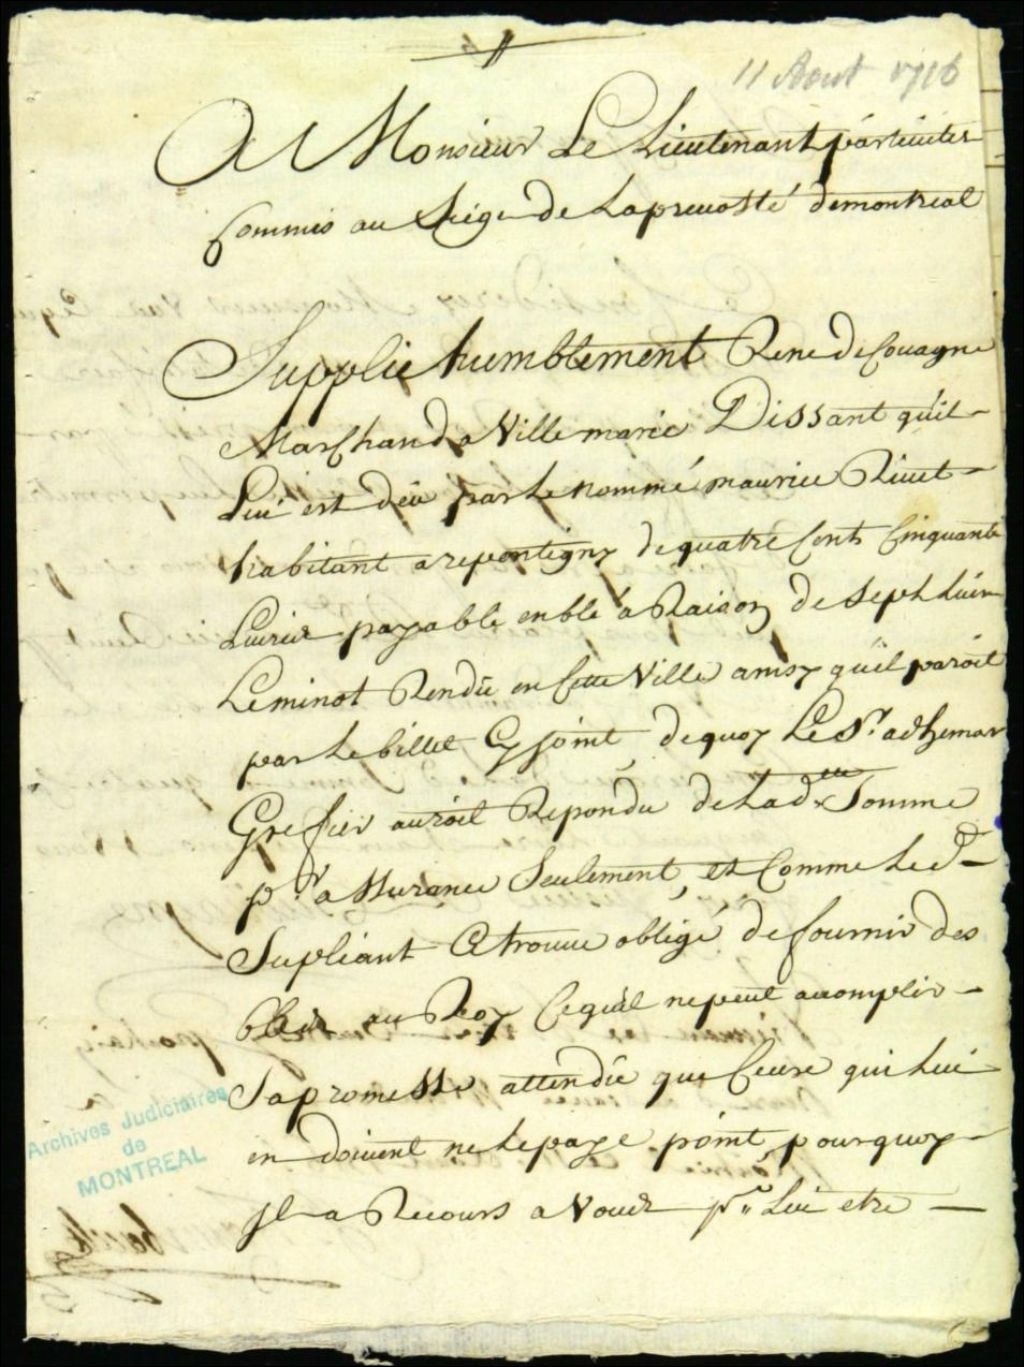 11 Aout 1716
A Monsieur Le Lieutenant particulier
Commis au Siege de Laprevosté demontreal
Supplie humblement Rene de Couagne
Marchand a Villemarie Dissant quil
Lui est deu par Le nommé maurice Rivet
habitant a repentigny de quatre Cents Cinquante
Livres payable en blé a Raison de Sept Livres
Leminot Rendu en Cette Ville ainsy quil paroit
par Le billet Cy joint, dequoy Le Sr. adhemar
Grefier auroit Repondu de Lade. Somme
pr. assurance Seulement, et Comme Led.
Supliant Ce trouve obligé de fournir des
bleds au Roy Cequil nepeut accomplir
Sapromesse attendu que Ceux qui Lui
en doivent ne Lepaye point, pourquoy
Il a Recours a Vous pr. Lui etre
Archives Judiciaires
de
MONTREAL